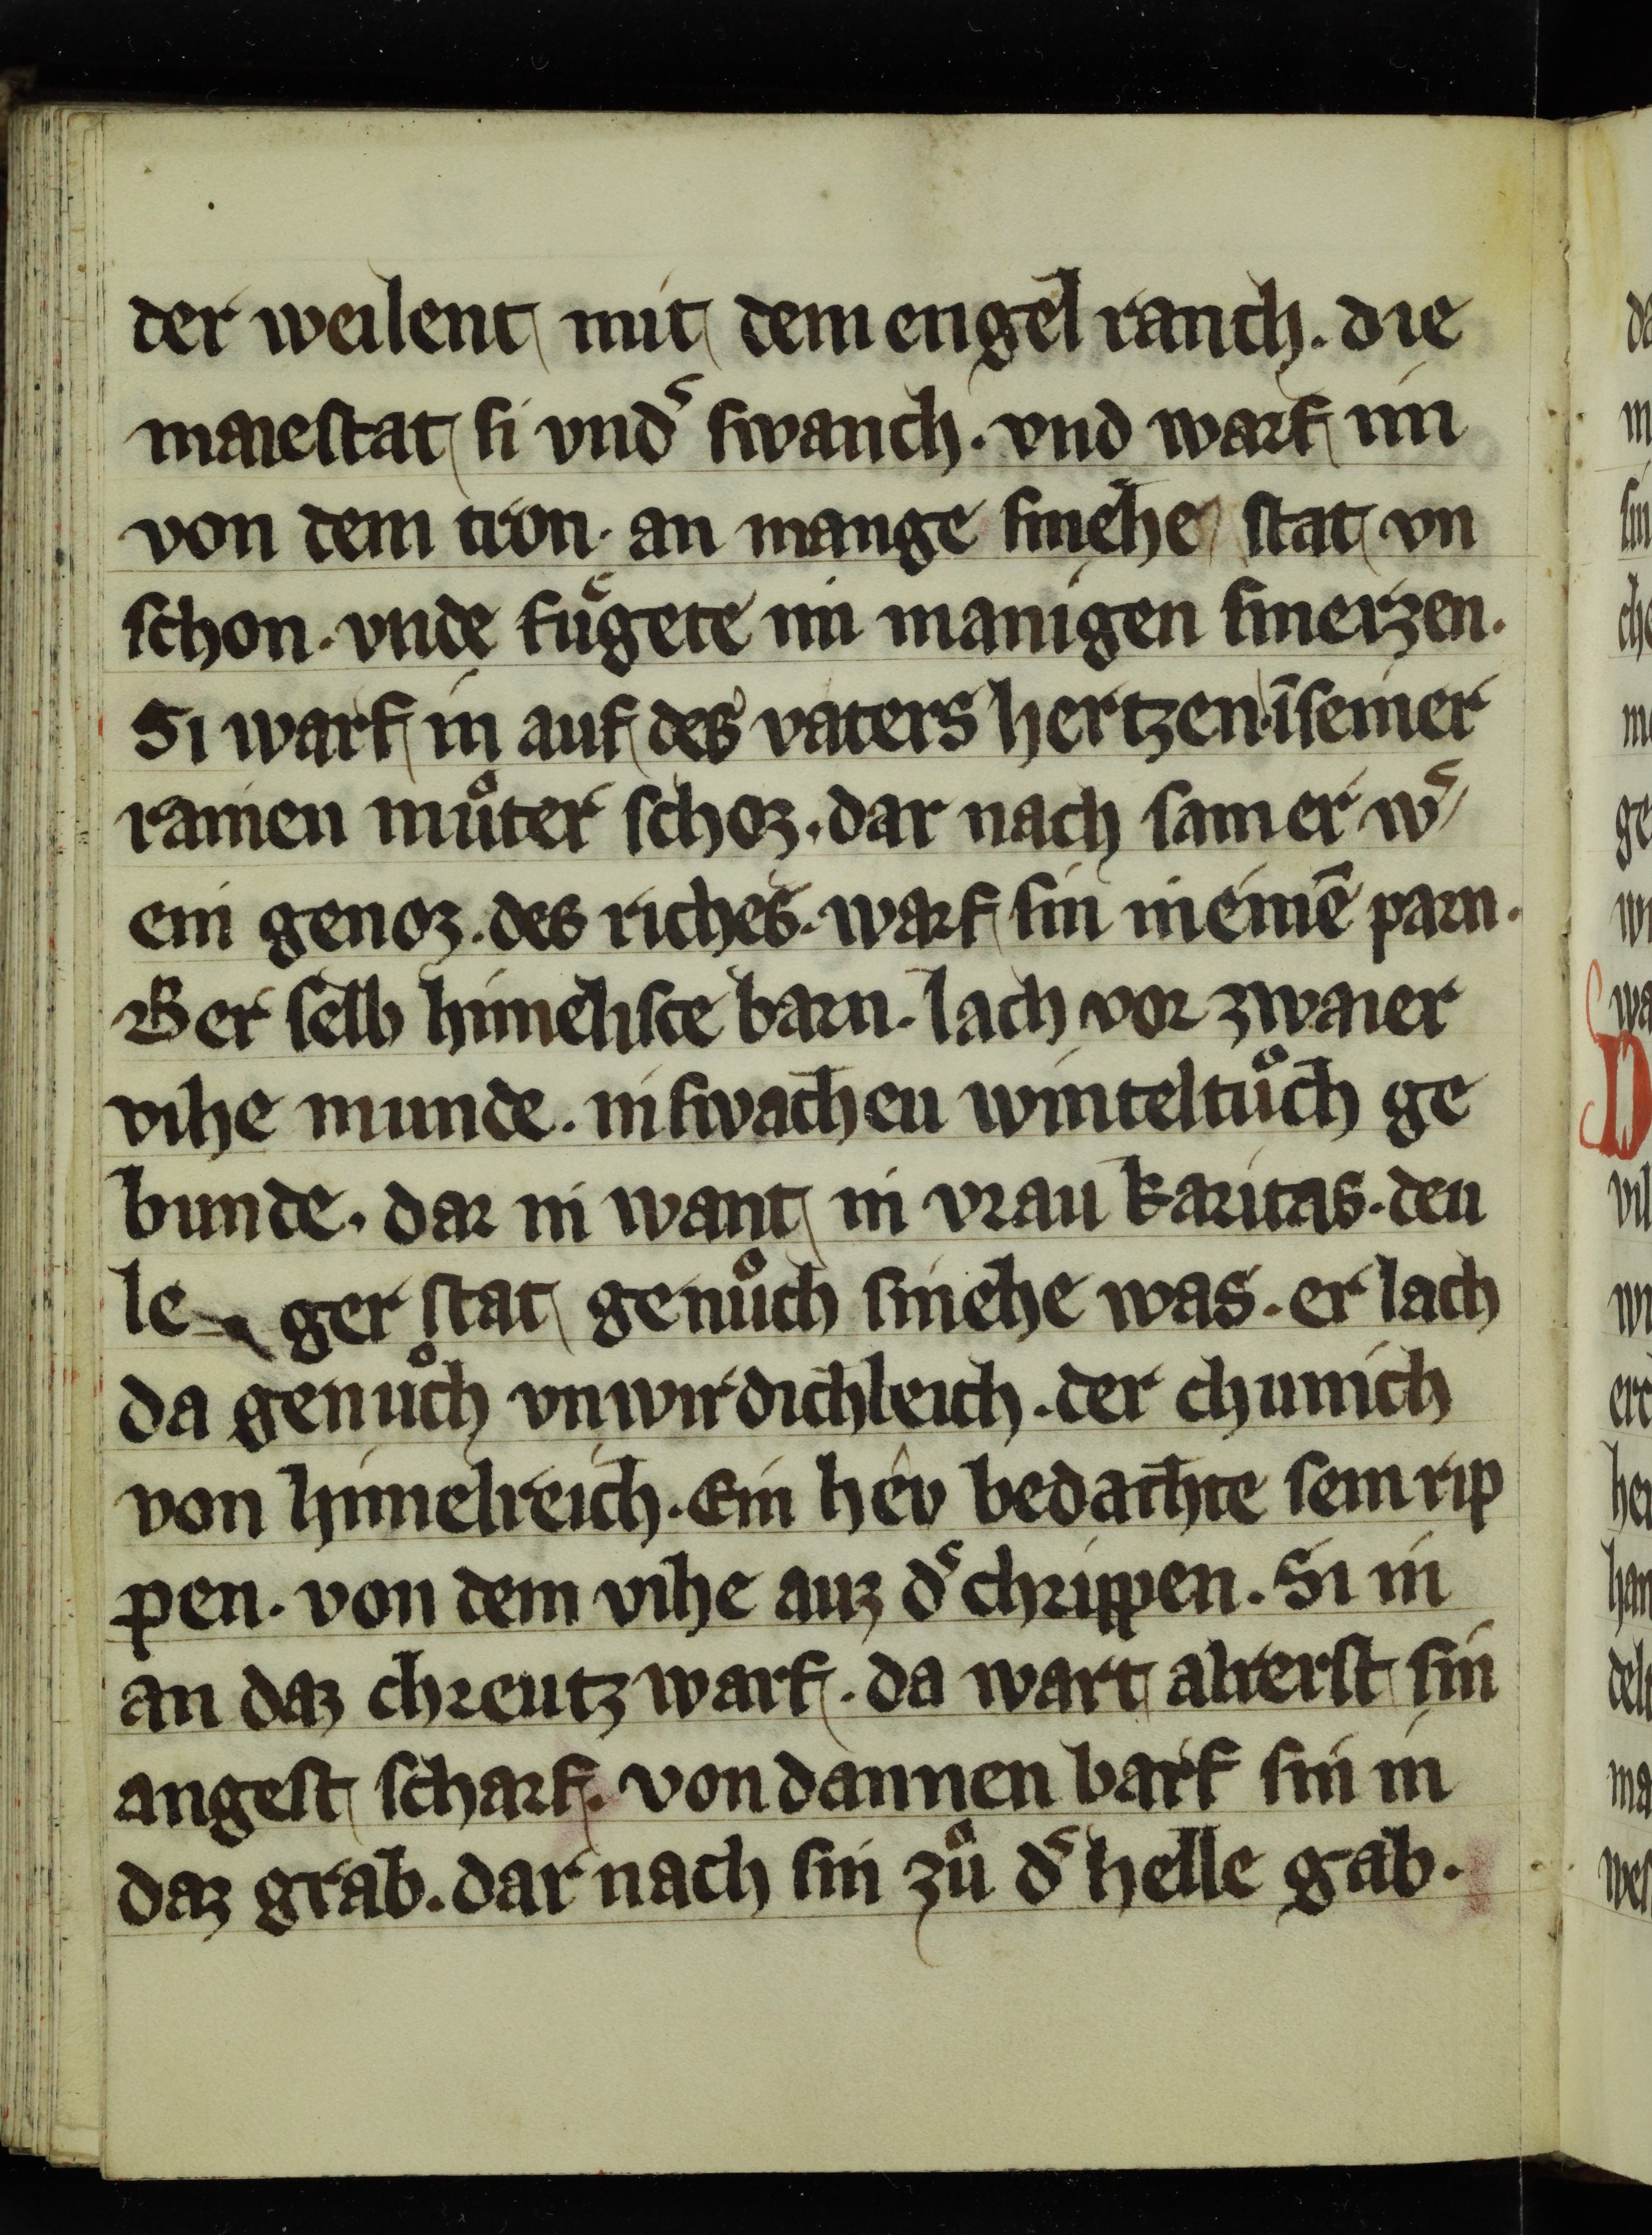 der weilent mit dem engel ranch. die
maiestat si vndˢ swanch. vnd warf im
von dem tron. an mange smehe stat vn
schon. vnde fuͤgete im manigen smerzen.
Si warf in auf des vaters hertzen. ī seiner
rainen muͦter schoz. dar nach sam er wˢ
ein genoz. des riches. warf sin in einē parn.
Der selb himelisce barn. lach vor zwaier
vihe munde. in swachen winteltuͦch ge
bunde. dar in want in vrau karitas. den
le ger stat genuͦch smehe was. er lach
da genuͦch vnwirdichleich. der chunich
von himelreich. Ein hêv bedachte sein rip
pen. von dem vihe auz dˢ chrippen. Si in
an daz chreutz warf. da wart alrerst sin
angest scharf. von dannen barf sin in
daz grab. dar nach sin zuͦ dˢ helle gab.
da
m
sin
che
ge
wa
D
vil
er
her
han
del
ma
wes